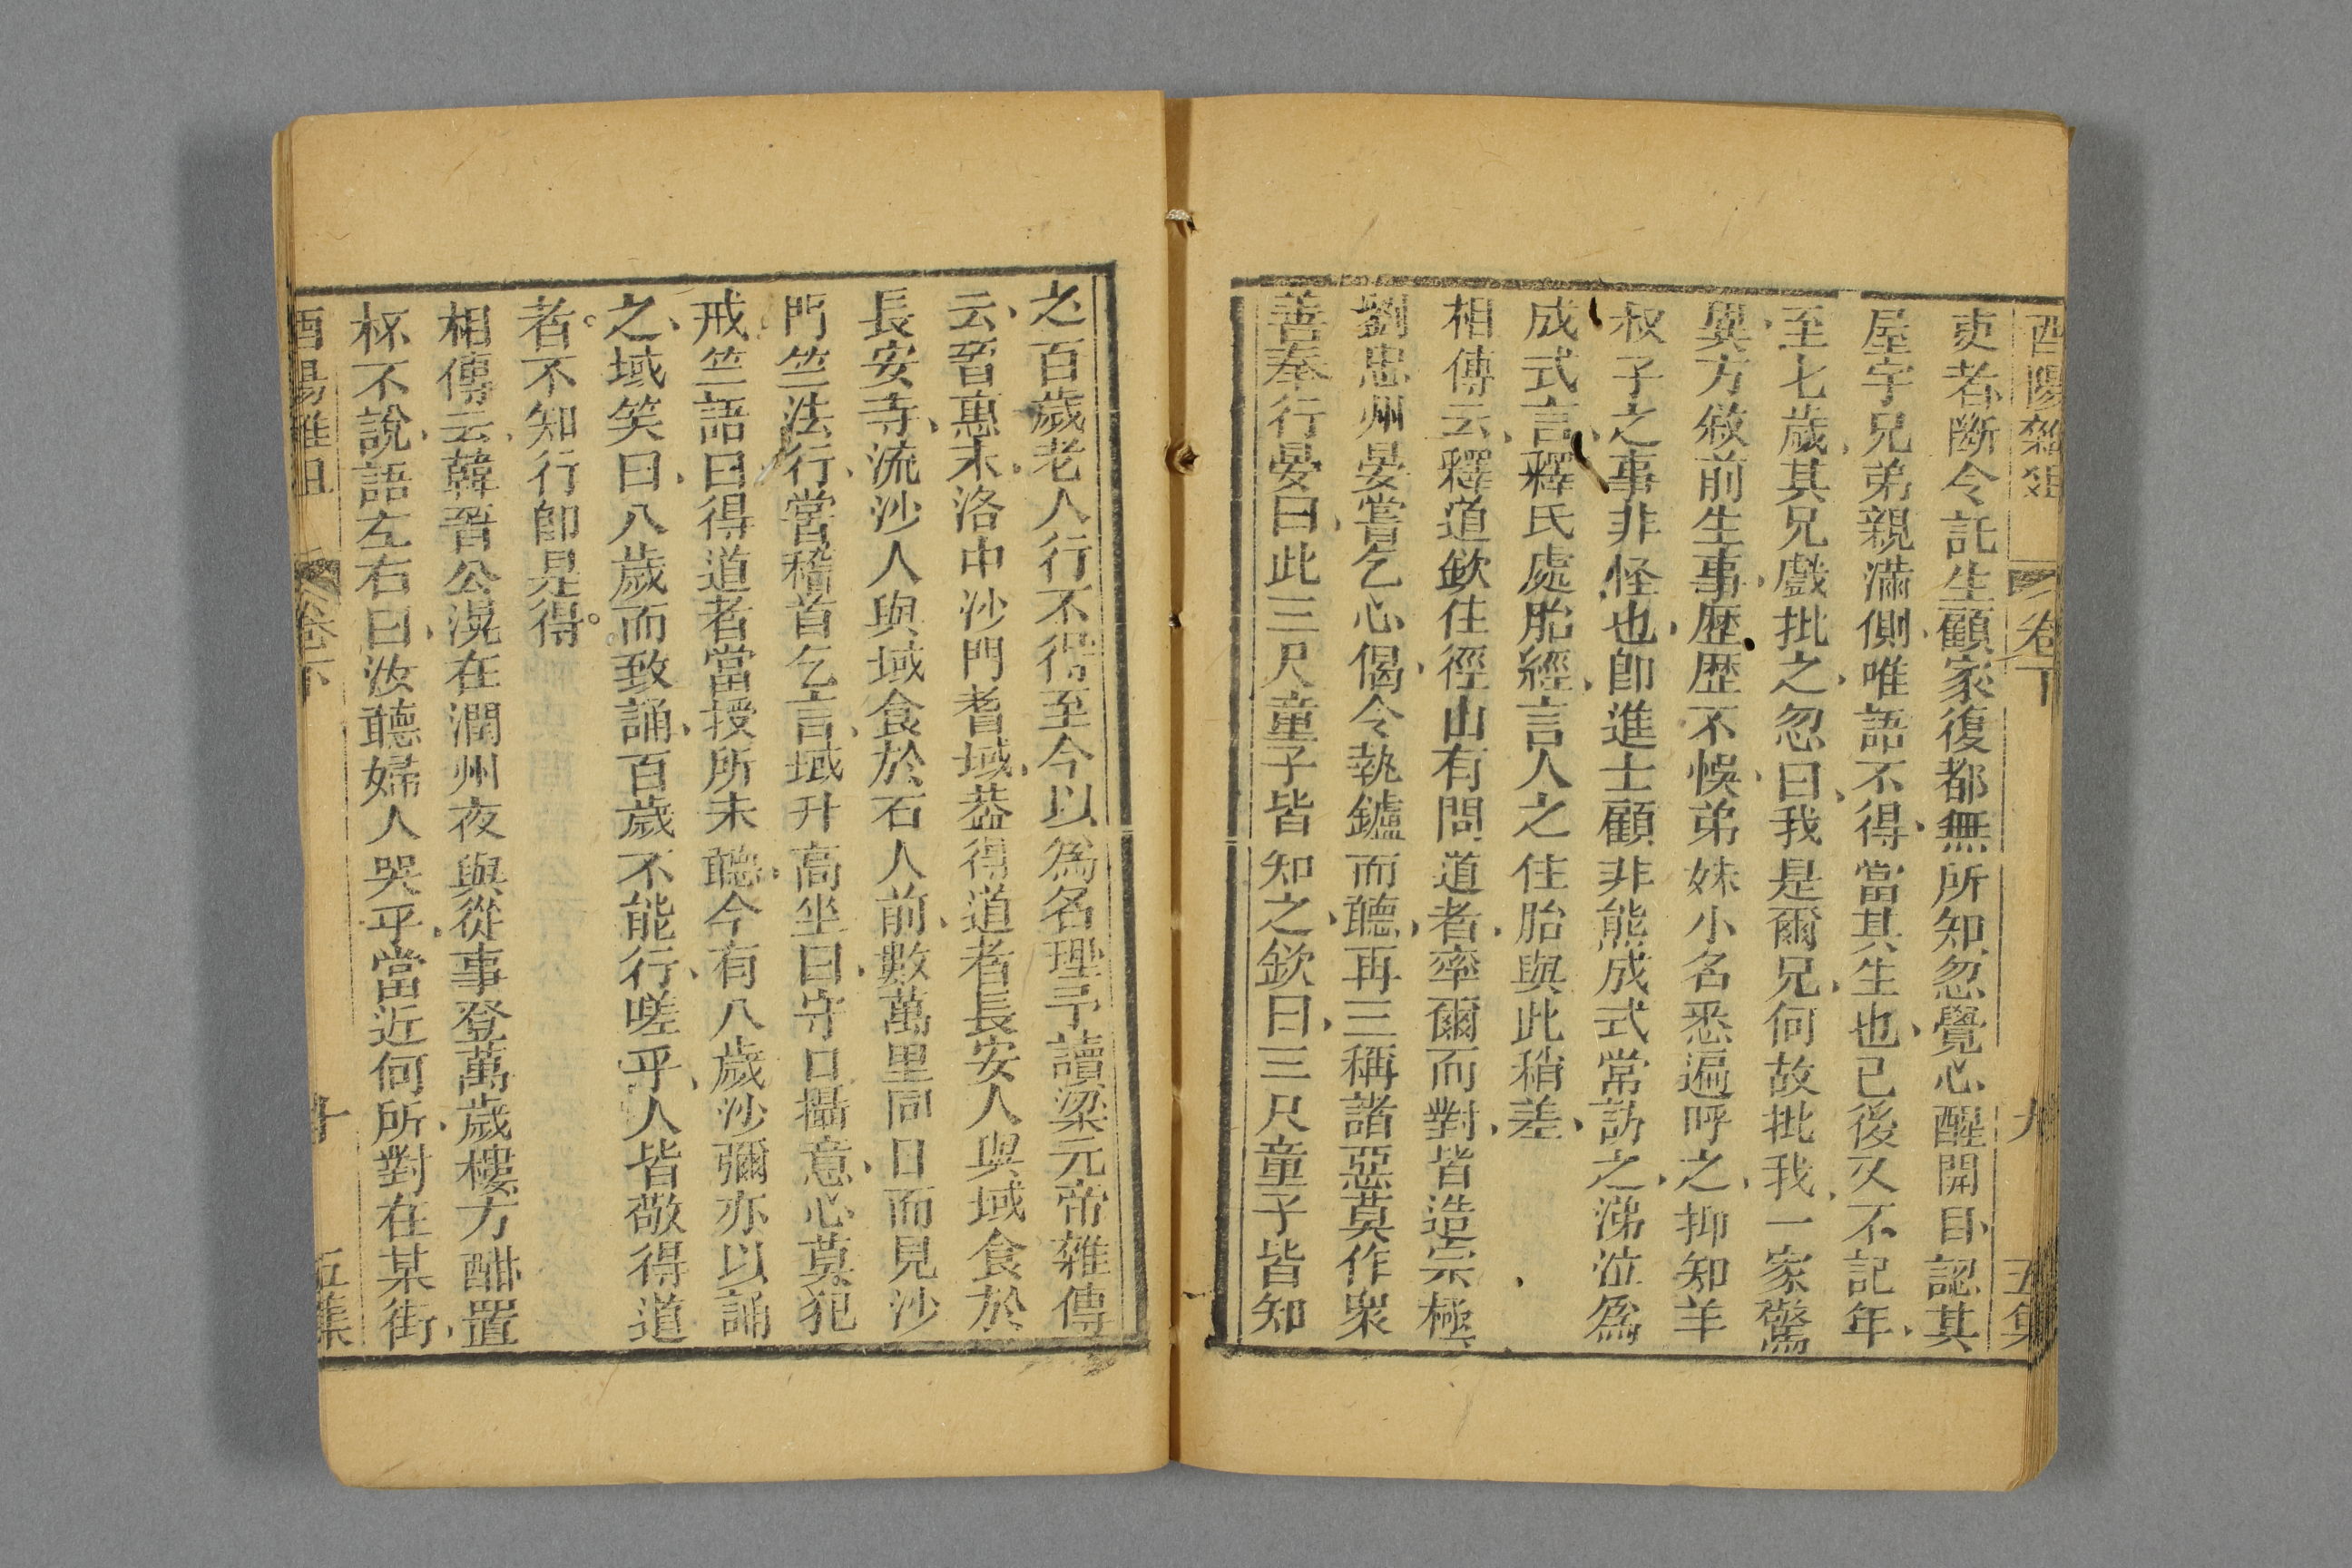 酉陽雜俎 卷下 九 五集
吏者斷令託生顧家復都無所知忽覺心醒開目認其
屋宇兄弟親滿側唯語不得當其生也已後又不記年
至七歲其兄戲批之忽曰我是爾兄何故批我一家驚
異方敘前生事歷歷不悞弟妹小名悉遍呼之抑知羊
叔子之事非怪也卽進士顧非熊成式常訪之涕泣爲
成式言釋氏處胎經言人之住胎與此稍差
相傳云釋道欽住徑山有問道者率爾而對皆造宗極
劉忠州晏嘗乞心偈令執鑪而聽再三稱諸惡莫作衆
善奉行晏曰此三尺童子皆知之欽曰三尺童子皆知
之百歲老人行不得至今以爲名理予讀梁元帝雜傳
云晉惠末洛中沙門耆域葢得道者長安人與域食於
長安寺流沙人與域食於石人前數萬里同日而見沙
門竺法行嘗稽首乞言域升高坐曰守口攝意心莫犯
戒竺語曰得道者當授所未聽今有八歲沙彌亦以誦
之域笑曰八歲而致誦百歲不能行嗟乎人皆敬得道
者不知行卽是得
相傳云韓晉公滉在潤州夜與從事登萬歲樓方酣置
杯不說語左右曰汝聽婦人哭乎當近何所對在某街
酉陽雜俎 卷下 十 五集